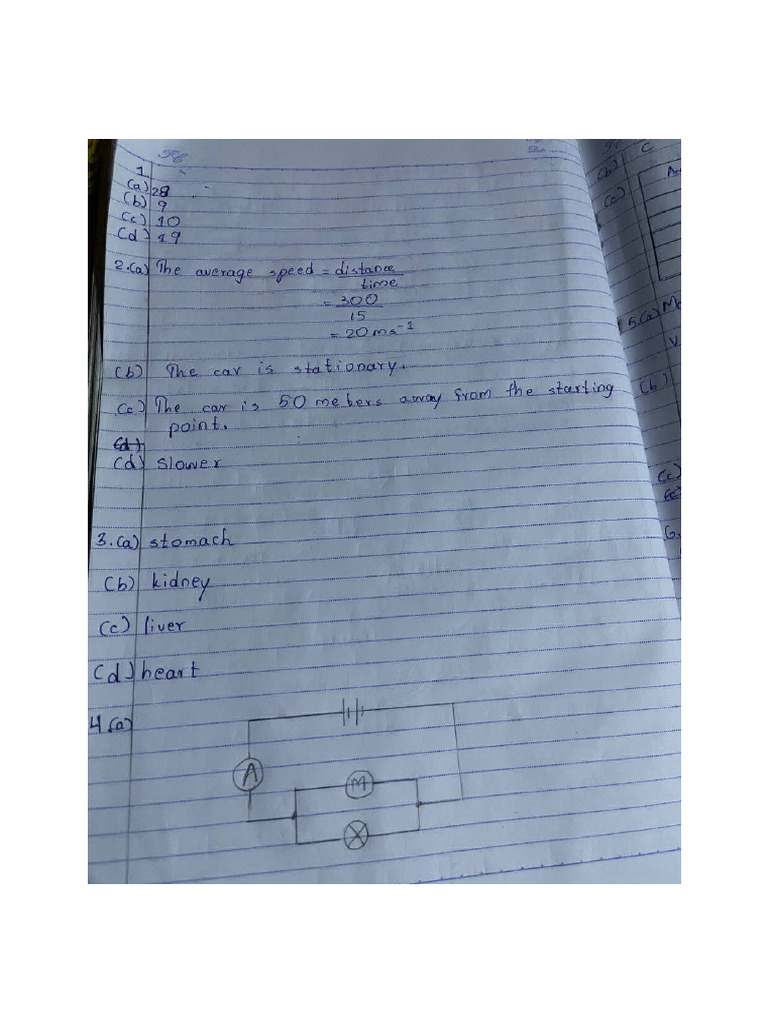 1.
(a) 28
(b) 9
(c) 10
(d) 19
2.(a) The average speed = distance
time
= 300
15
= 20 ms⁻¹
(b) The car is stationary.
(c) The car is 50 meters away from the starting
point.
(d)
(d) slower
3.(a) stomach
(b) kidney
(c) liver
(d) heart
4.(a)
A
M
(b) C
(c)
5.(a)
(b)
(c)
6.